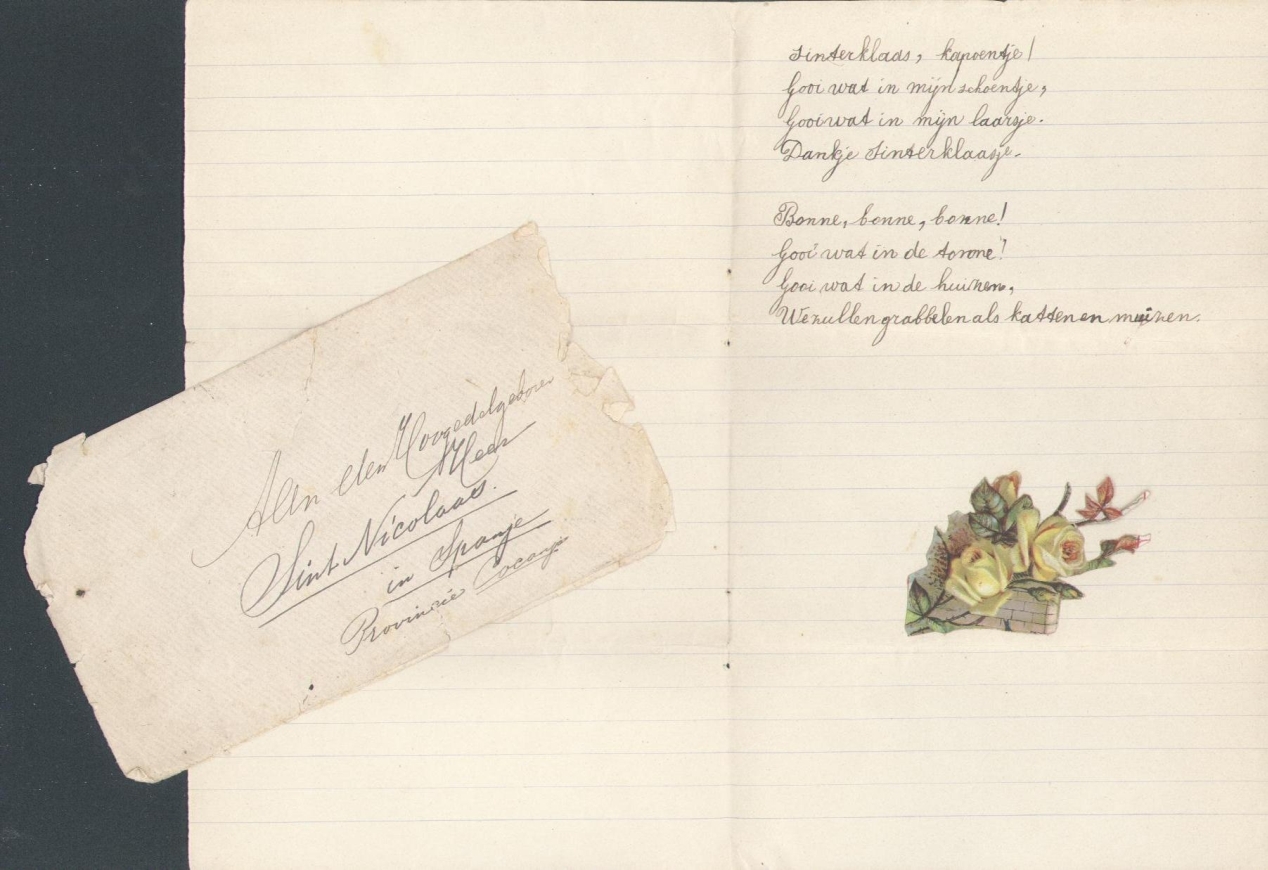 Sinterklaas, kapoentje!
Gooi wat in mijn schoentje,
Gooi wat in mijn laarsje.
Dankje Sinterklaasje.
Bonne, bonne, bonne!
Gooi wat in de tonne!
Gooi wat in de huizen,
We zullen grabbelen als katten en muizen.
Aan den Hoogedelgeboren
Heer
Sint Nicolaas.
in Spanje
Provincie